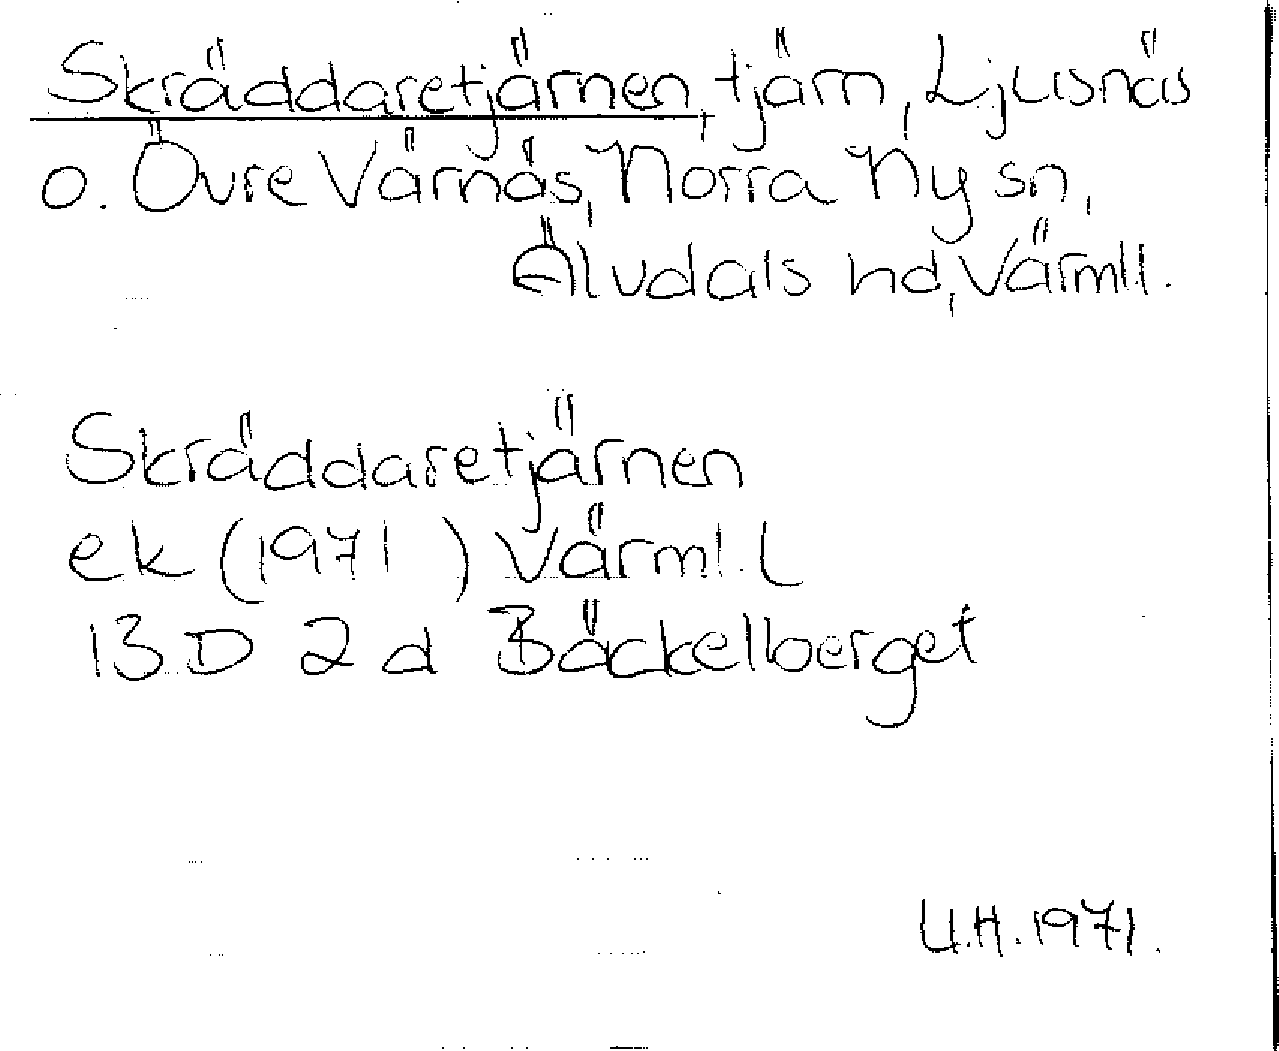 Skräddaretjärnen, tjärn, Ljusnäs
o. Övre Värnäs, Norra Ny sn,
Älvdals hd, Värml l.
Skräddaretjärnen
ek (1971 ) Värml. L
13 D 2 d Bäckelberget
U.H. 1971.